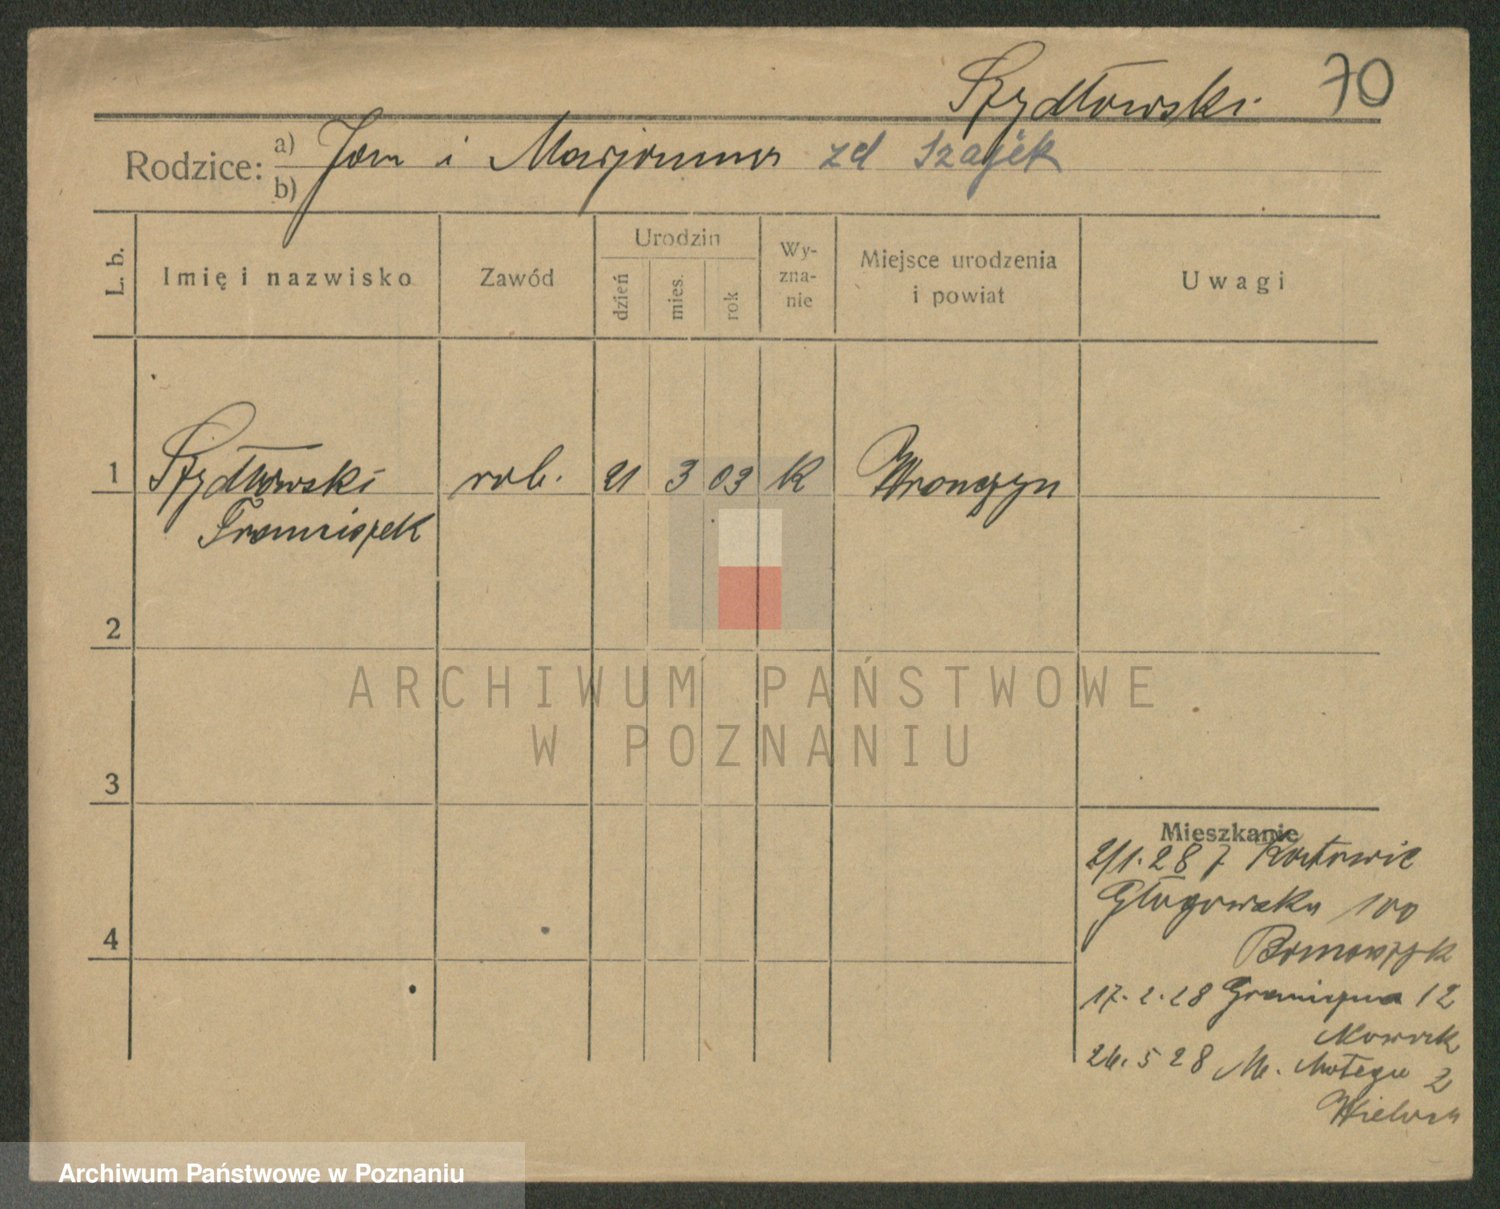 Szydłowski 70
Rodzice: a) Jan i Marjanna zd Szajek
b)
L. b.
Imię i nazwisko
Zawód
Urodzin
dzień
mies.
rok
Wy-
zna-
nie
Miejsce urodzenia
i powiat
Uwagi
1 Szydłowski rob. 21 3 03 K Wronczyn
Franciszek
2
3
4
Mieszkanie
2/1. 28 z Katowic
Głogowska 100
17. 2. 28 Graniczna 12
Nowak
26. 5 28 M. 2
ARCHIWUM PAŃSTWOWE
W POZNANIU
Archiwum Państwowe w Poznaniu